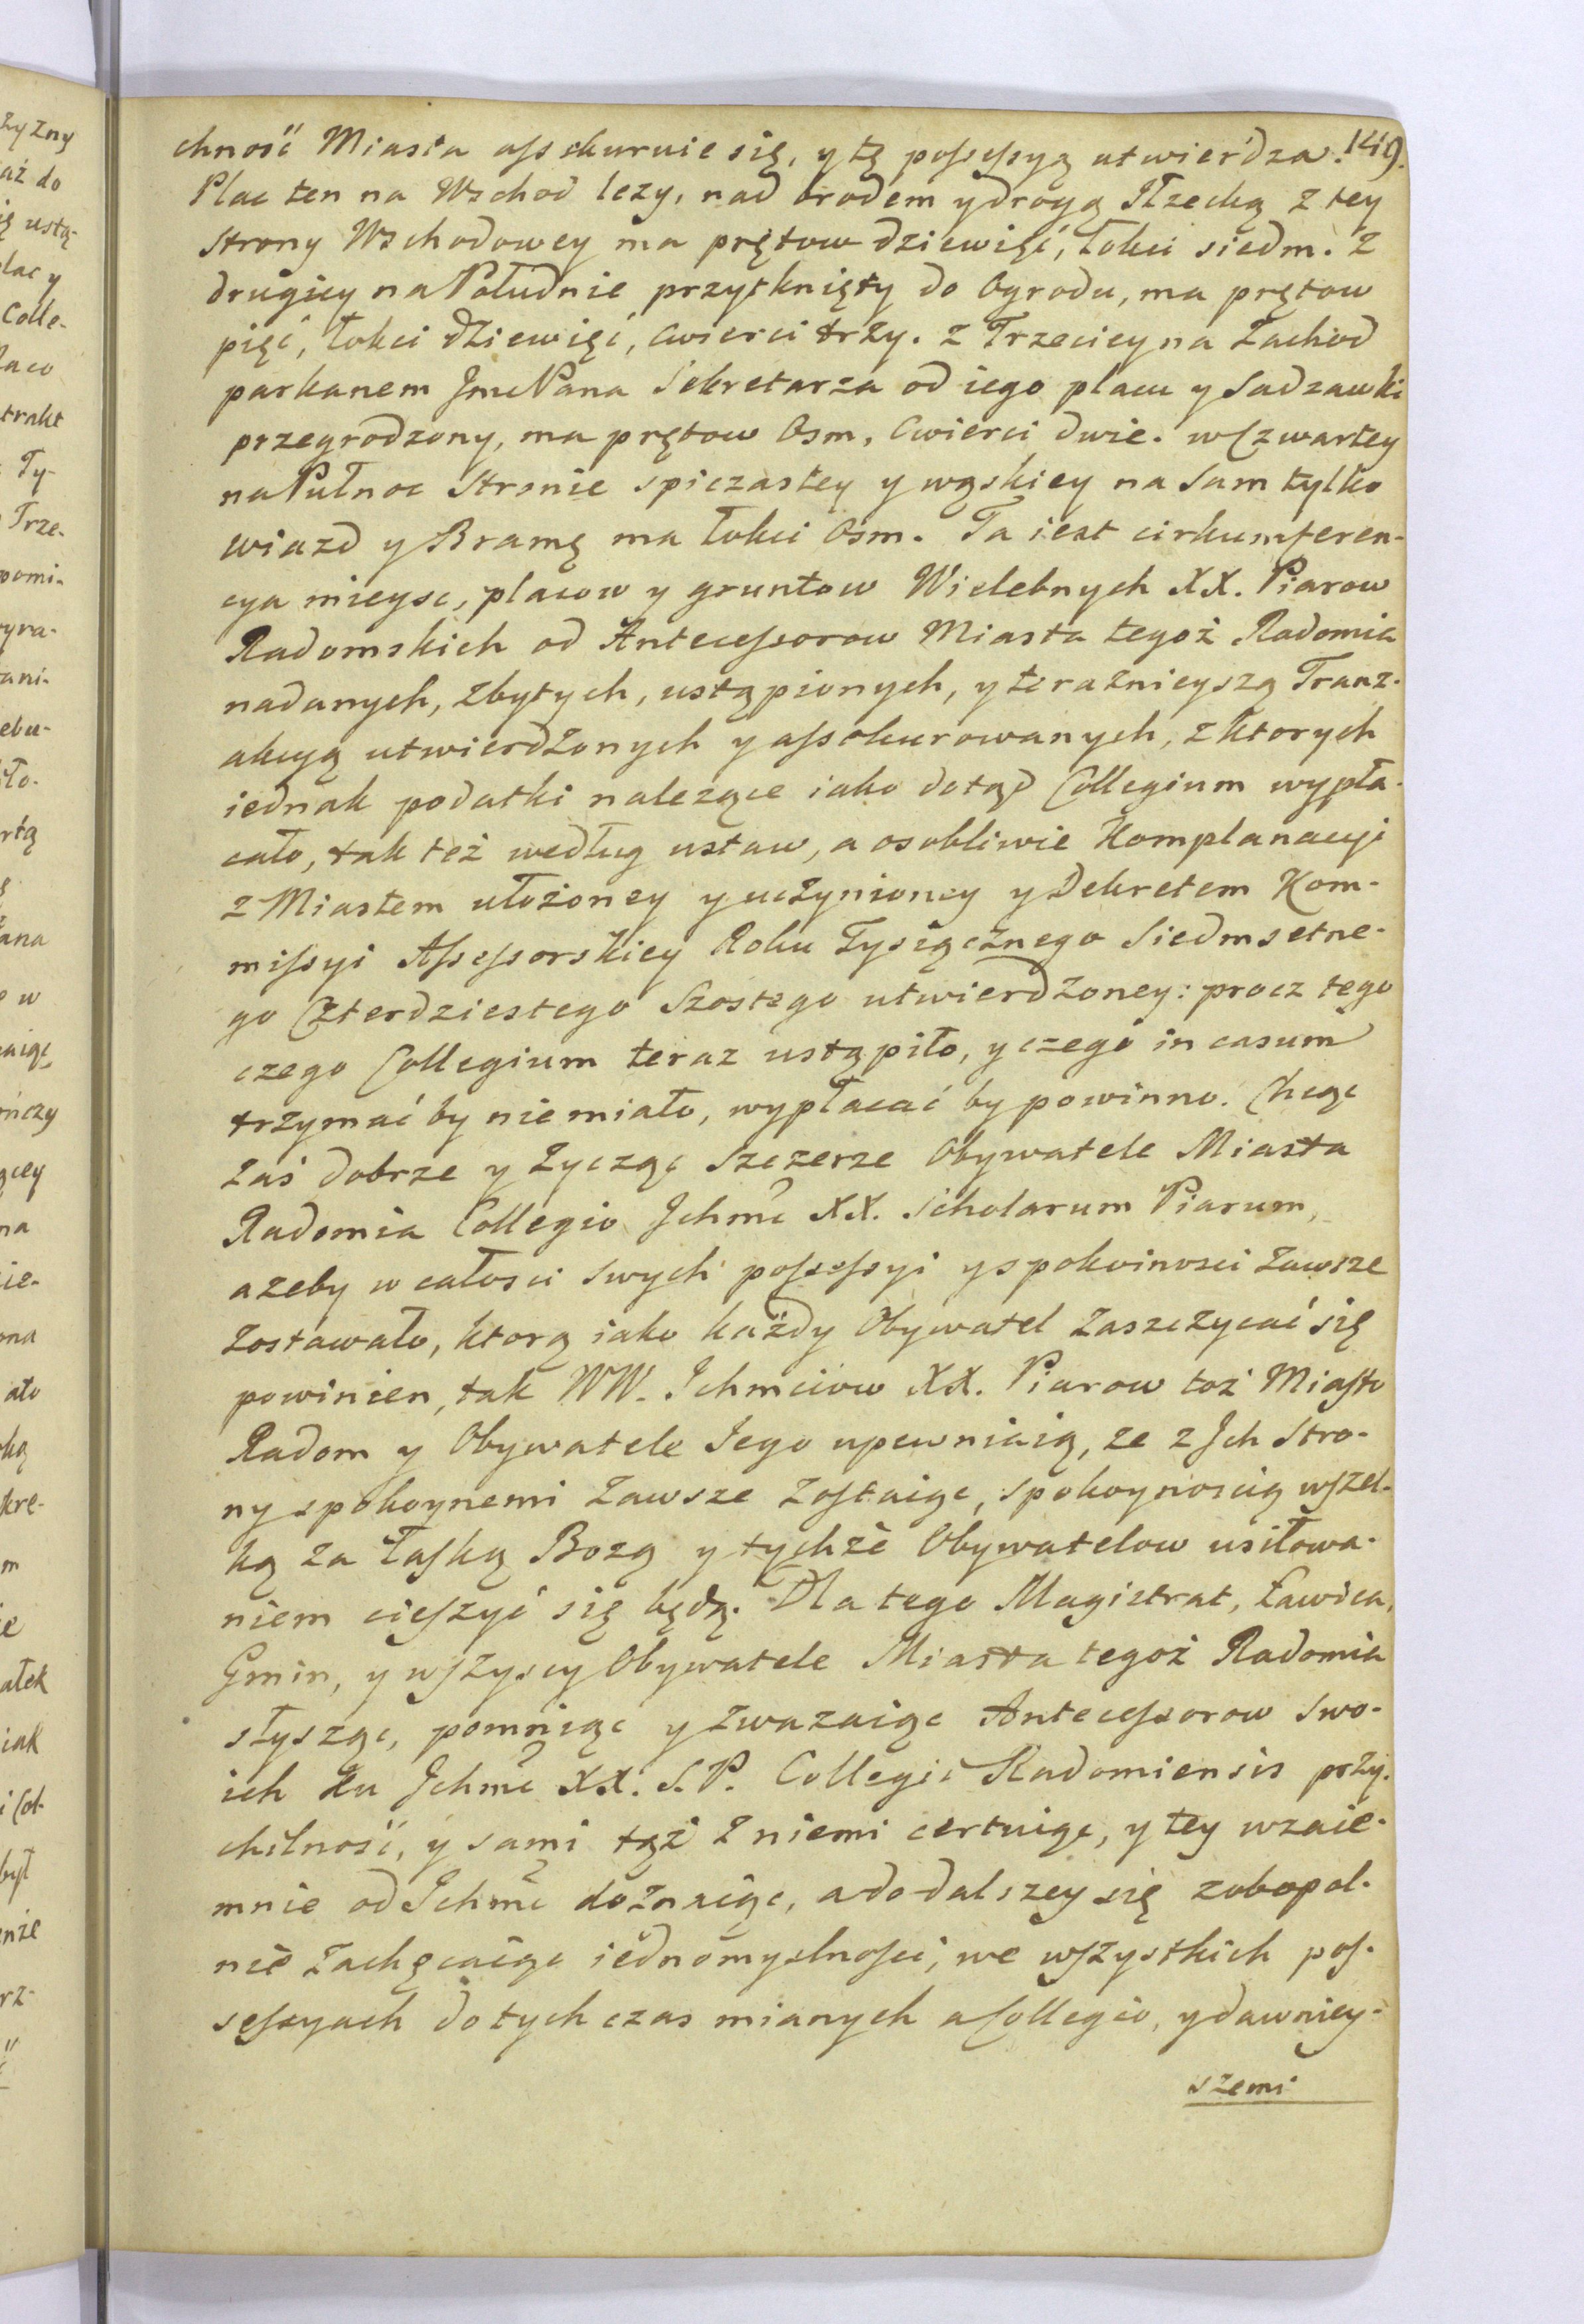 149.
chność Miasta assekuruie się, y tę possessyą utwierdza.
Plac ten na Wschod lezy, nad brodem y drogą Rzecką z tey
strony Wschodowey ma prętow dziewięć, łokci siedm. z
drugiey na Południe przytknięty do Ogrodu, ma prętow
pięć, łokci dziewięć, cwierci trzy. z Trzeciey na Zachod
parkanem JmcPana Sekretarza od iego placu y Sadzawki
przegrodzony, ma prętow Osm, cwierci dwie. w Czwartey
na Pułnoc Stronie spiczastey y wąskiey na Sam tylko
wiazd y Bramę ma łokci Osm. Ta iest cirkumferen-
cya mieysc, placow y gruntow Wielebnych XX. Piarow
Radomskich od Antecessorow Miasta tegoż Radomia
nadanych, zbytych, ustąpionych, y teraznieyszą Tranz-
akcyą utwierdzonych y assekurowanych, z ktorych
iednak podatki nalezące iako dotąd Collegium wypła-
cało, tak też według ustaw, a osobliwie Komplanacyi
z Miastem ułożoney y uczynioney y Dekretem Kom-
missyi Assessorskiey Roku Tysiącznego Siedmsetne-
go Czterdziestego Szostego utwierdzoney: procz tego
czego Collegium teraz ustąpiło, y czego in casum
trzymać by nie miało, wypłacać by powinno. Chcąc
zaś dobrze y zycząc Szczerze Obywatele Miasta
Radomia Collegio Jchmć XX. Scholarum Piarum,
azeby w całosci swych possessyi y spokoinosci zawsze
zostawało, ktorą iako każdy Obywatel zaszczycać się
powinien, tak WW. Ichmciow XX. Piarow toż Miasto
Radom y Obywatele Iego upewniaią, ze z Jch Stro-
ny spokoynemi zawsze zostaiąc, spokoynoscią wszel-
ką za łaską Bozą y tychże Obywatelow usiłowa-
niem cieszyć się będą. Dla tego Magistrat, Ławica,
Gmin, y wszyscy Obywatele Miasta tegoż Radomia
słysząc, pomniąc y zwazaiąc Antecessorow Swo-
ich ku Jchmć XX. S.P. Collegii Radomiensis przy-
chilność, y sami tęż z niemi certuiąc, y tey wzaie-
mnie od Ichmć doznaiąc, a do dalszey się zobopol-
nie zachęcaiąc iednomyslnosci, we wszystkich pos-
sessyach do tych czas mianych a Collegio, y dawniey-
szemi